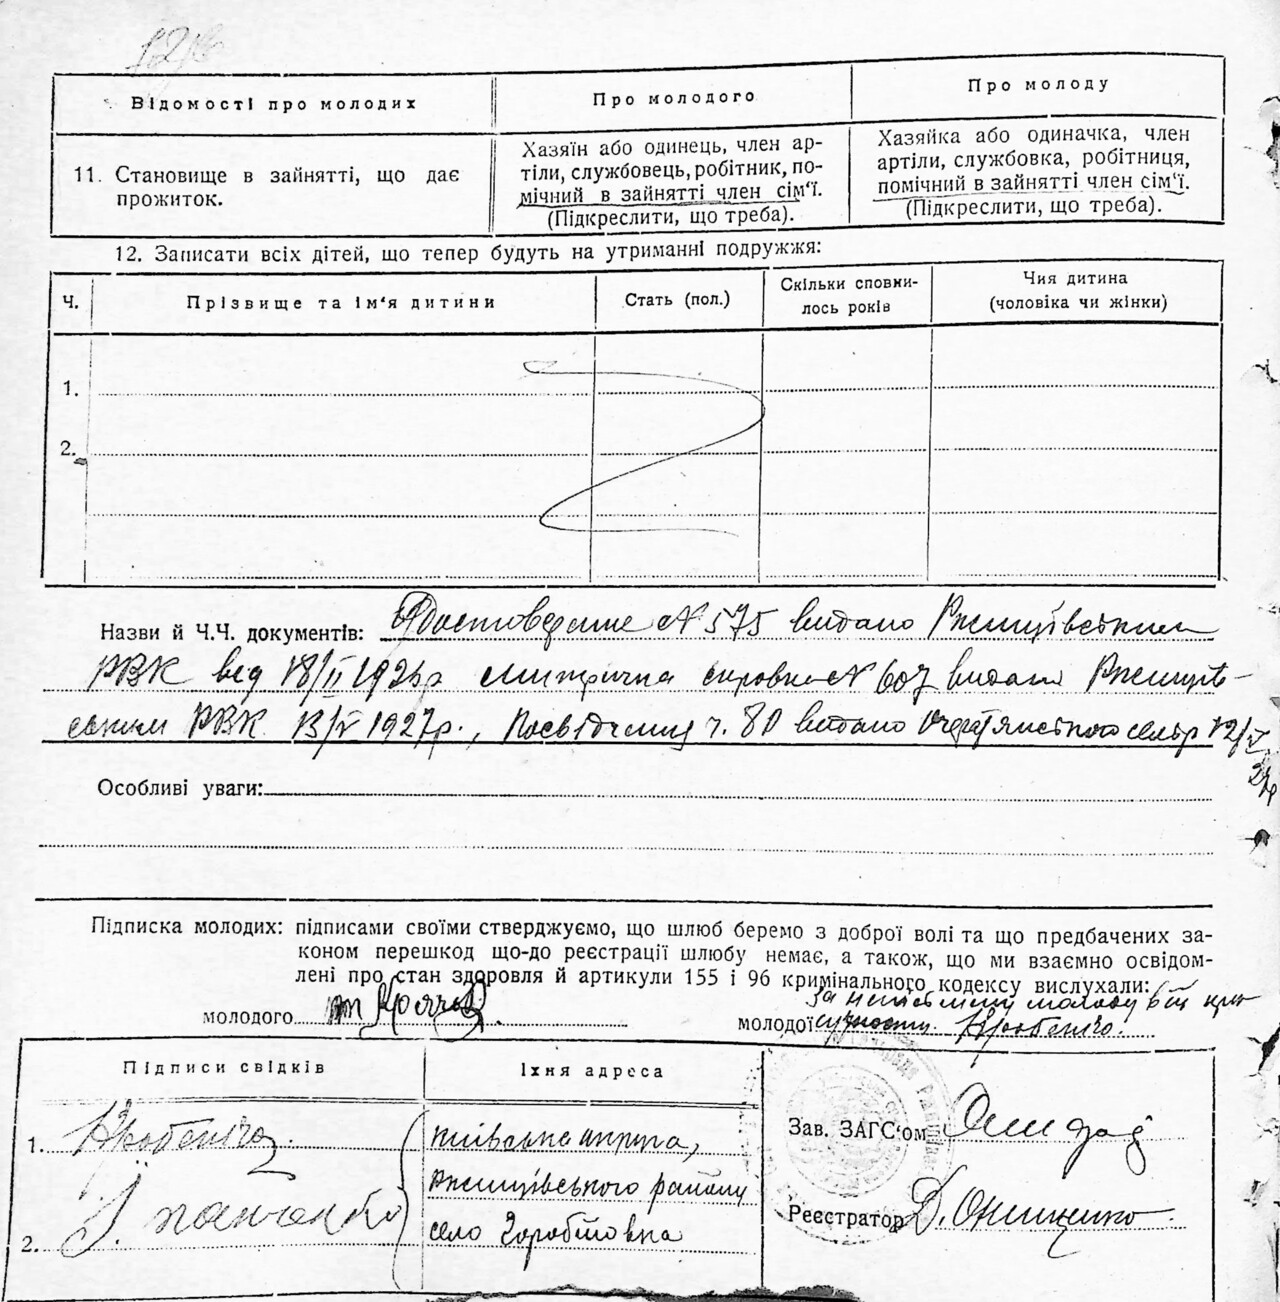 Відомості про молодих
Про молодого
Про молоду
11. Становище в зайнятті, що дає
прожиток.
Хазяїн або одинець, член ар-
тілі, службовець, робітник, по-
мічний в зайнятті член сім'ї.
(Підкреслити, що треба).
Хазяйка або одиначка, член
артіли, службовка, робітниця,
помічний в зайнятті член сім'ї.
(Підкреслити, що треба).
12. Записати всіх дітей, що тепер будуть на утриманні подружжя:
Ч.
Прізвище та ім'я дитини
Стать (пол.)
Скільки сповни-
лось років
Чия дитина
(чоловіка чи жінки)
1.
2.
Назви й Ч.Ч. документів: Удостоведение № 575 видано Ржищівським
РВК від 18/II 1926р метрична справка № 607 видана Ржищів-
ським РВК 13/V 1927р., Посвідчення ч. 80 видано сельр 12/V
27р
Особливі уваги:
Підписка молодих: підписами своїми стверджуємо, що шлюб беремо з доброї волі та що предбачених за-
коном перешкод що-до реєстрації шлюбу немає, а також, що ми взаємно освідом-
лені про стан здоровля й артикули 155 і 96 кримінального кодексу вислухали:
молодого
за неписьмену молоду
молодої
Підписи свідків
Їхня адреса
1.
Київська округа,
Ржищівського району
2.
село
Зав. ЗАГС'ом
Реєстратор Д. Онищенко